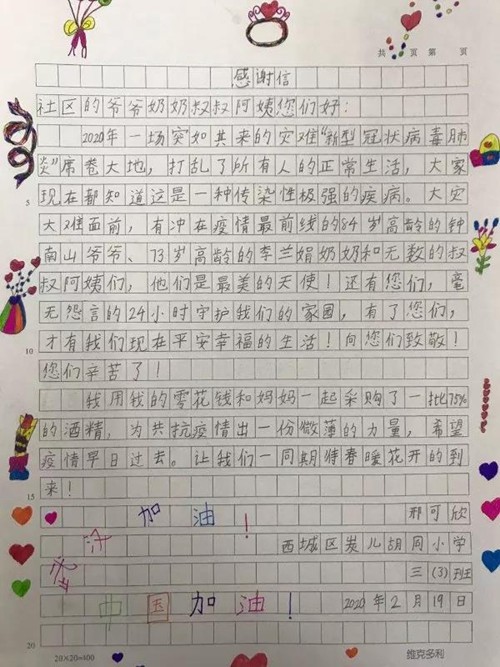 共 页 第 页
感谢信
社区的爷爷奶奶叔叔阿姨您们好：
2020年一场突如其来的灾难“新型冠状病毒肺
炎”席卷大地，打乱了所有人的正常生活，大家
现在都知道这是一种传染性极强的疾病。大灾
大难面前，有冲在疫情最前线的84岁高龄的钟
南山爷爷、73岁高龄的李兰娟奶奶和无数的叔
叔阿姨们，他们是最美的天使！还有您们，毫
无怨言的24小时守护我们的家园，有了您们，
才有我们现在平安幸福的生活！向您们致敬！
您们辛苦了！
我用我的零花钱和妈妈一起采购了一批75%
的酒精，为共抗疫情出一份微薄的力量，希望
疫情早日过去。让我们一同期待春暖花开的到
来！
加油！
邢可欣
西城区炭儿胡同小学
三（3）班
中国加油！
2020年2月19日
5
10
15
20
20×20=400
维克多利